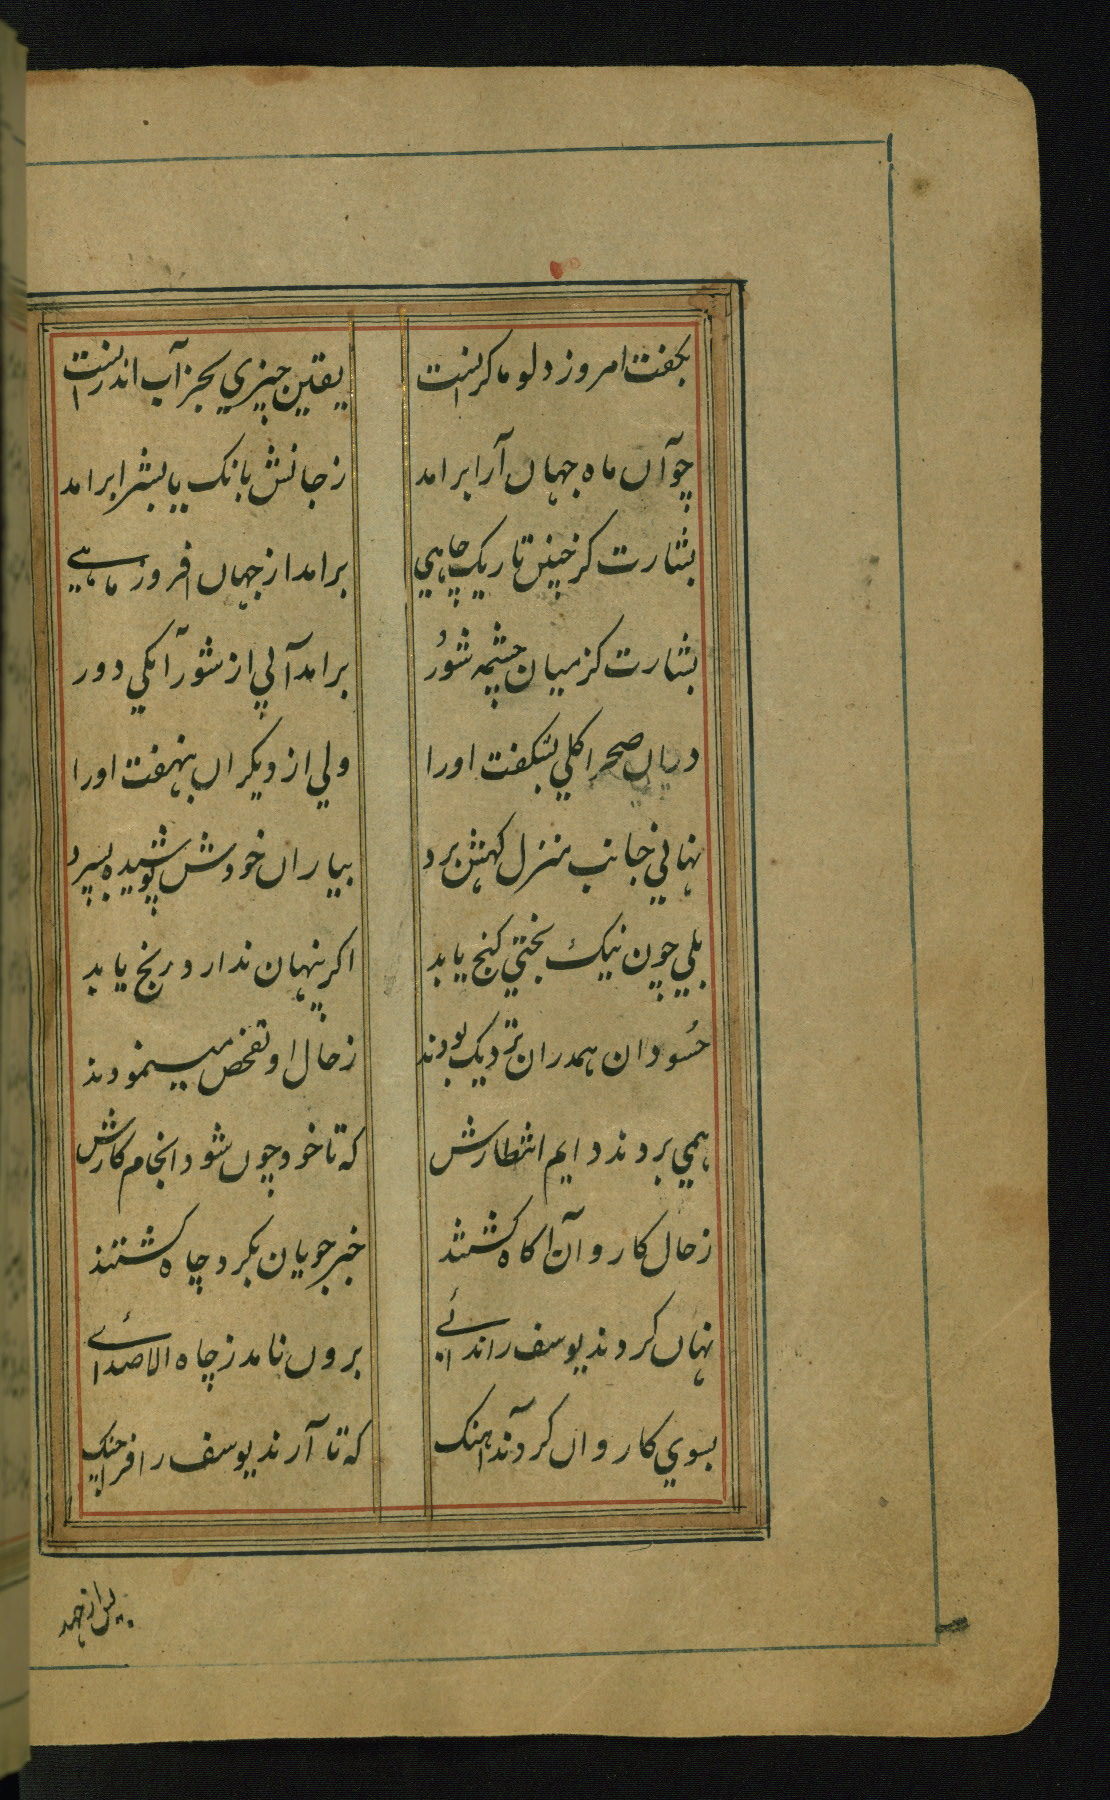 بگفت امروز دلو ما گرانست
یقین چیزی بجز آب اندرانست
چو آن ماه جهان آرا برامد
ز جانش بانگ یا بشرا برامد
بشارت کز چنین تاریک چاهی
برامد از جهان افروز ماهی
بشارت کز میان چشمه شور
برامد آبی از شور آبگی دور
دران صحرا گلی بشکفت اورا
ولی از دیگران بنهفت اورا
نهانی جانب منزل گهش برد
بیاران خودش پوشیده بسپرد
بلی چون نیک بختی گنج یابد
اگر پنهان ندارد رنج یابد
حسودان همدران نزدیک بودند
ز حال او تفحص مینمودند
همی بردند دایم انتظارش
که تا خود چون شود انجام کارش
ز حال کاروان آگاه گشتند
خبر جویان بگرد چاه گشتند
نهان کردند یوسف را ندائے
برون نامد ز چاه الا صدائے
بسوی کاروان کردند آهنگ
که تا آرند یوسف را فراچنگ
پس از جهد